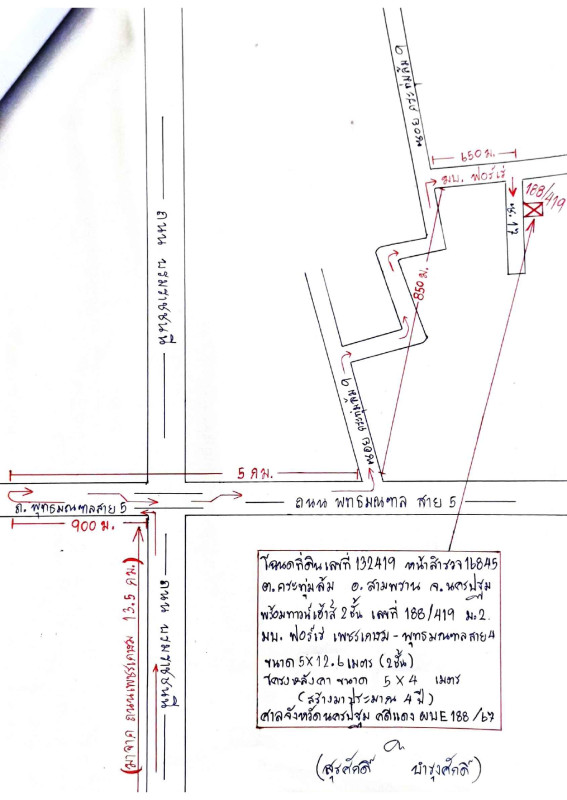 ซอย หมู่บุ่นรุ่ง 6
650 ม.
มบ. ฟอร์เร่
188/419
ซ.17
ถนน บรมราชชนนี
850 ม.
ซอย หมู่บุ่นรุ่ง 6
5 กม.
ถ. พุทธมณฑลสาย 5
ถนน พุทธมณฑล สาย 5
900 ม.
(มาจาก ถนนเพชรเกษม 13.5 กม.)
ถนน บรมราชชนนี
โฉนดที่ดิน เลขที่ 132419 หน้าสำรวจ 16845
ต.กระทุ่มล้ม อ.สามพราน จ.นครปฐม
พร้อมทาวน์เฮ้าส์ 2 ชั้น เลขที่ 188/419 ม.2
มบ. ฟอร์เร่ เพชรเกษม-พุทธมณฑลสาย 4
ขนาด 5X12.6 เมตร (2ชั้น)
โครงหลังคา ขนาด 5X4 เมตร
(สร้างมา ประมาณ 4 ปี)
ศาลจังหวัดนครปฐม คดีแดง ผบE 188/67
(สุรศักดิ์ บำรุงศักดิ์)